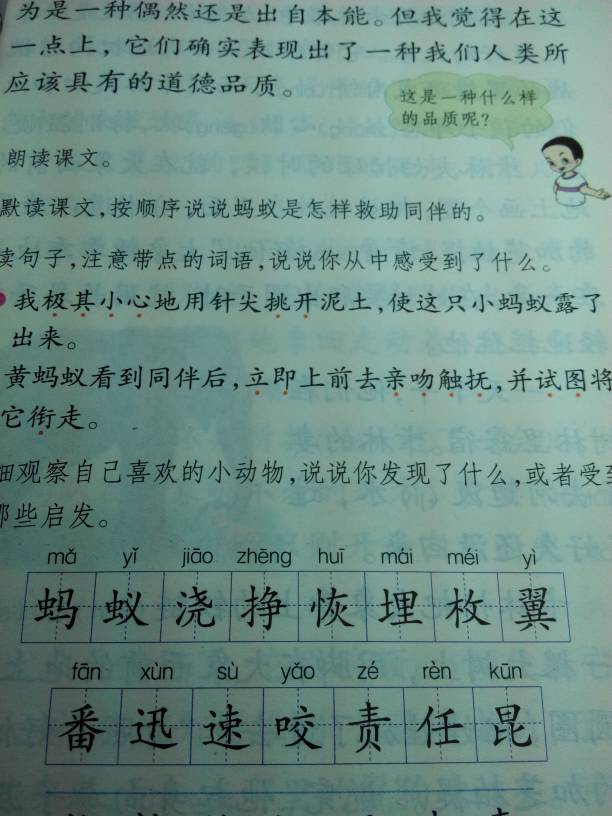 为是一种偶然还是出自本能。但我觉得在这
一点上，它们确实表现出了一种我们人类所
应该具有的道德品质。
这是一种什么样
的品质呢？
朗读课文。
默读课文，按顺序说说蚂蚁是怎样救助同伴的。
读句子，注意带点的词语，说说你从中感受到了什么。
我极其小心地用针尖挑开泥土，使这只小蚂蚁露了
出来。
黄蚂蚁看到同伴后，立即上前去亲吻触抚，并试图将
它衔走。
细观察自己喜欢的小动物，说说你发现了什么，或者受到
哪些启发。
mǎ yǐ jiāo zhēng huī mái méi yì
蚂 蚁 浇 挣 恢 埋 枚 翼
fān xùn sù yǎo zé rèn kūn
番 迅 速 咬 责 任 昆